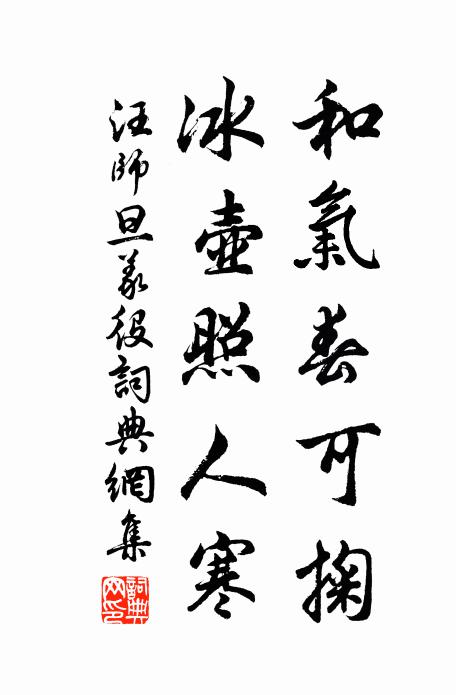 和氣春可掬
冰壺照人寒
汪師旦義役詞典網集
詞典網印